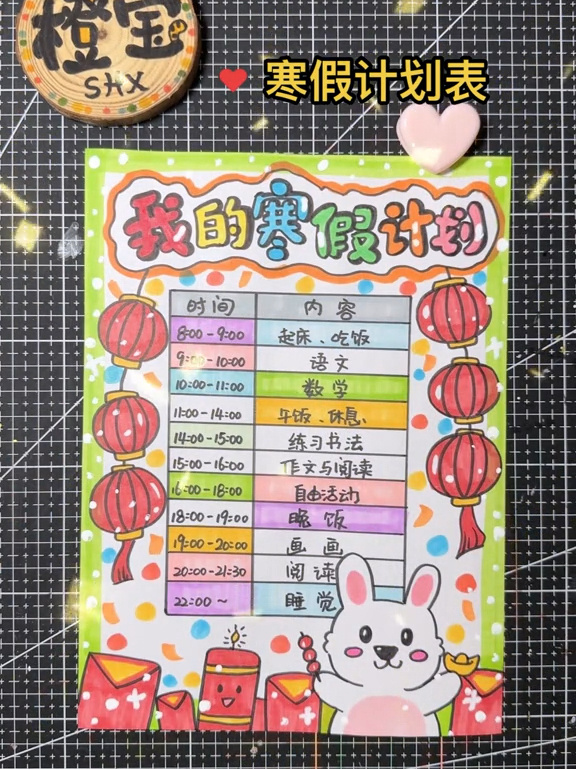 橙宝
SHX
寒假计划表
我的寒假计划
时间 内容
8:00-9:00 起床、吃饭
9:00-10:00 语文
10:00-11:00 数学
11:00-14:00 午饭、休息
14:00-15:00 练习书法
15:00-16:00 作文与阅读
16:00-18:00 自由活动
18:00-19:00 晚饭
19:00-20:00 画画
20:00-21:30 阅读
22:00~ 睡觉